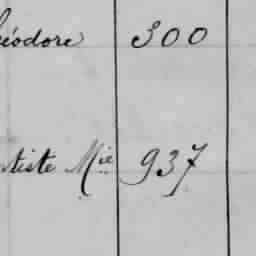 éodore 300
tiste Mie 937